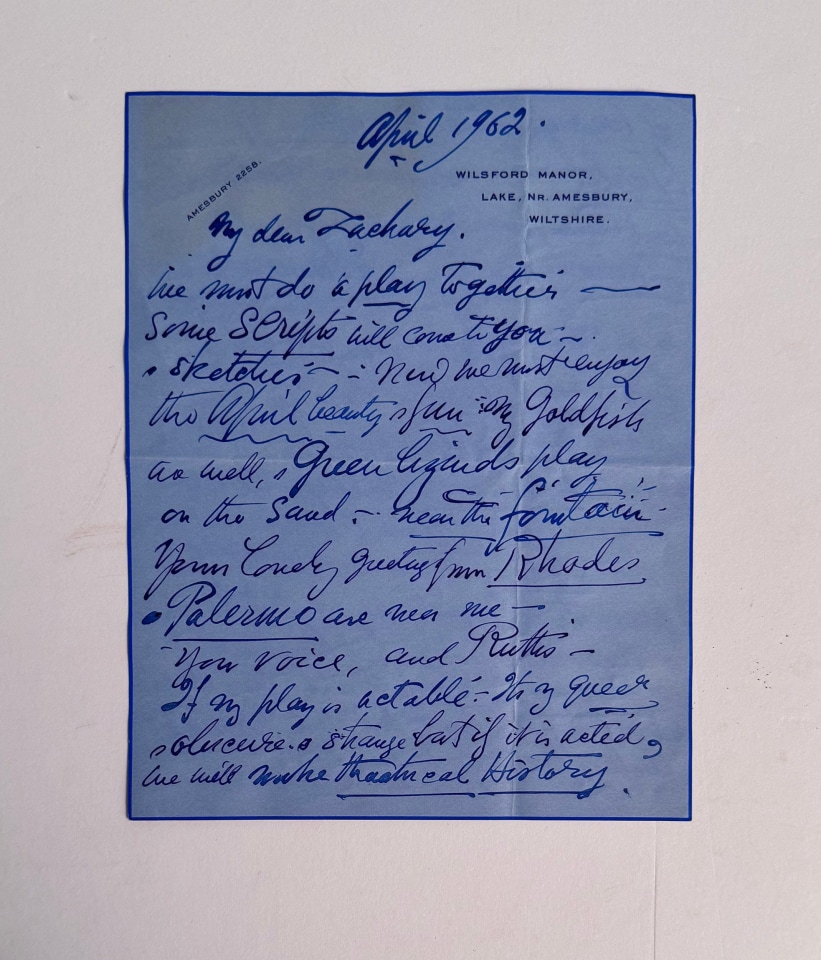 April 1962.
AMESBURY 2258.
WILSFORD MANOR,
LAKE, NR. AMESBURY,
WILTSHIRE.
My dear Zachary.
We must do a play together —
Some Scripts will come to you —.
& sketches — : Now we must enjoy
the April beauty & fun : My Goldfish
as well, & Green lizards play
on the Sand — near the fountain —
Your lovely greetings from Rhodes
& Palermo are near me —
Your voice, and Ruth's —
If my play is actable — It is queer
& obscure & strange but if it is acted,
we will make theatrical History.